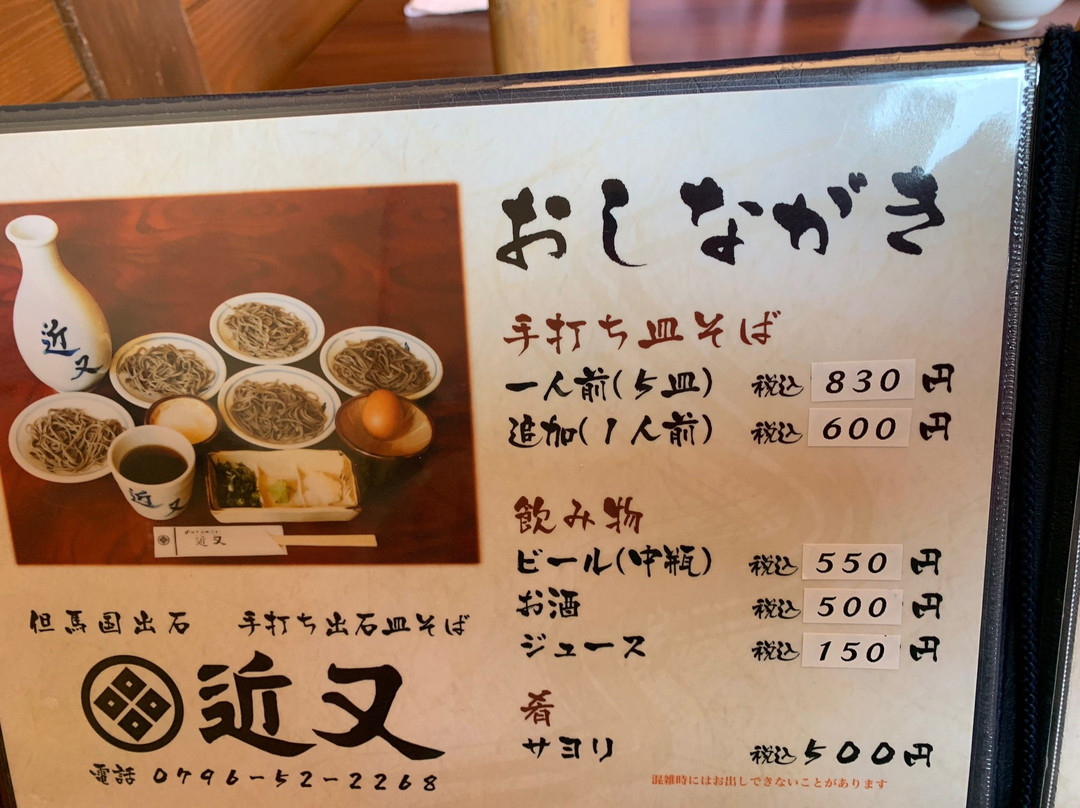 近又
近又
近又
但馬国出石 手打ち出石皿そば
近又
電話 0796-52-2268
おしながき
手打ち皿そば
一人前(5皿) 税込 830 円
追加(1人前) 税込 600 円
飲み物
ビール(中瓶) 税込 550 円
お酒 税込 500 円
ジュース 税込 150 円
肴
サヨリ 税込 500円
混雑時にはお出しできないことがあります